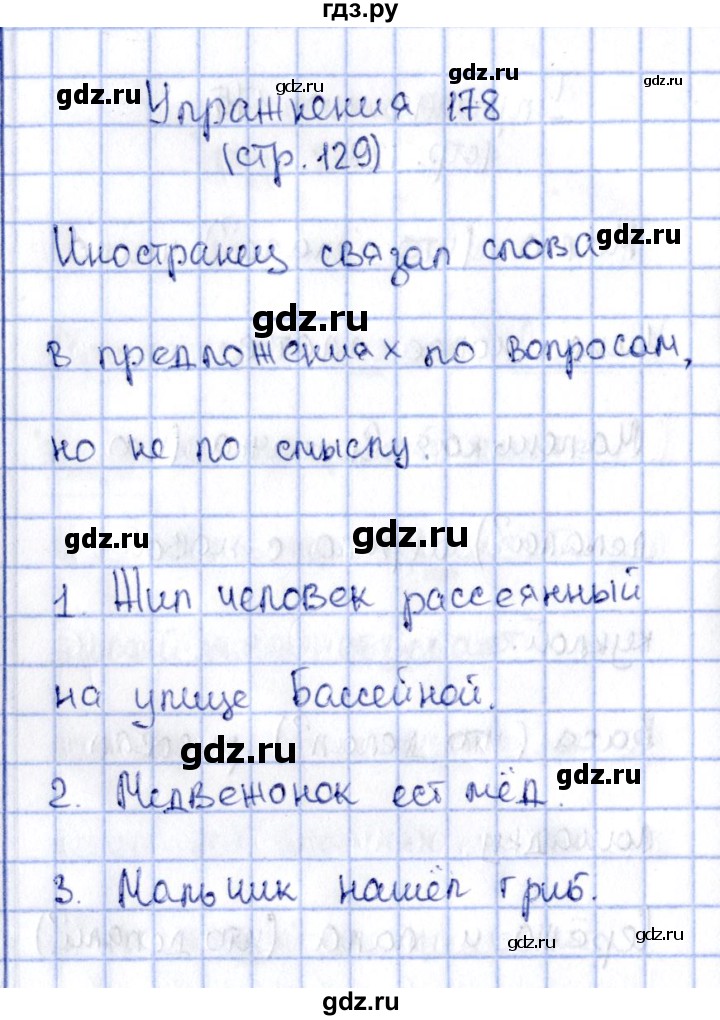 гдз.ру
gdz.ru
gdz.ru
gdz.ru
Упражнения 178
(стр. 129)
Иностранец связал слова
gdz.ru
gdz.ru
в предложениях по вопросам,
но не по смыслу.
gdz.ru
gdz.ru
1. Жил человек рассеянный
на улице Бассейной.
gdz.ru
gdz.ru
2. Медвежонок ест мёд.
3. Мальчик нашёл гриб.
gdz.ru
gdz.ru
gdz.ru
gdz.ru